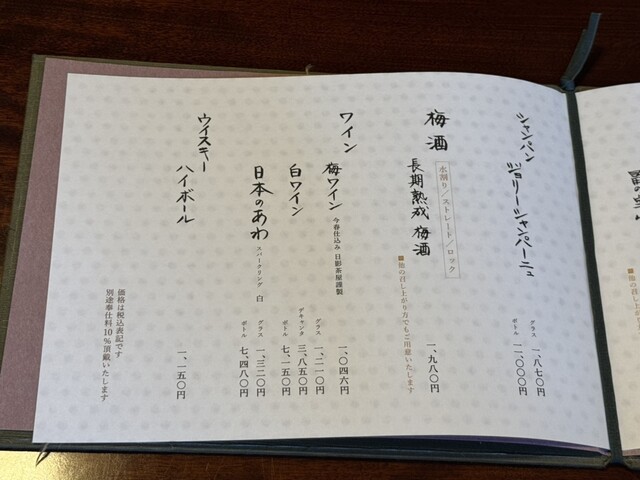 シャンパン
ジョリーシャンパーニュ
グラス 一、八七〇円
ボトル 一一、〇〇〇円
梅酒
水割り／ストレート／ロック
長期熟成 梅酒
一、九八〇円
■他の召し上がり方でもご用意いたします
ワイン
梅ワイン 今春仕込み 日影茶屋謹製
一、〇四六円
白ワイン
グラス 一、二一〇円
デキャンタ 三、八五〇円
ボトル 七、一五〇円
日本のあわ スパークリング 白
グラス 一、三二〇円
ボトル 七、四八〇円
ウイスキー
ハイボール
一、一五〇円
価格は税込表記です
別途奉仕料10％頂戴いたします